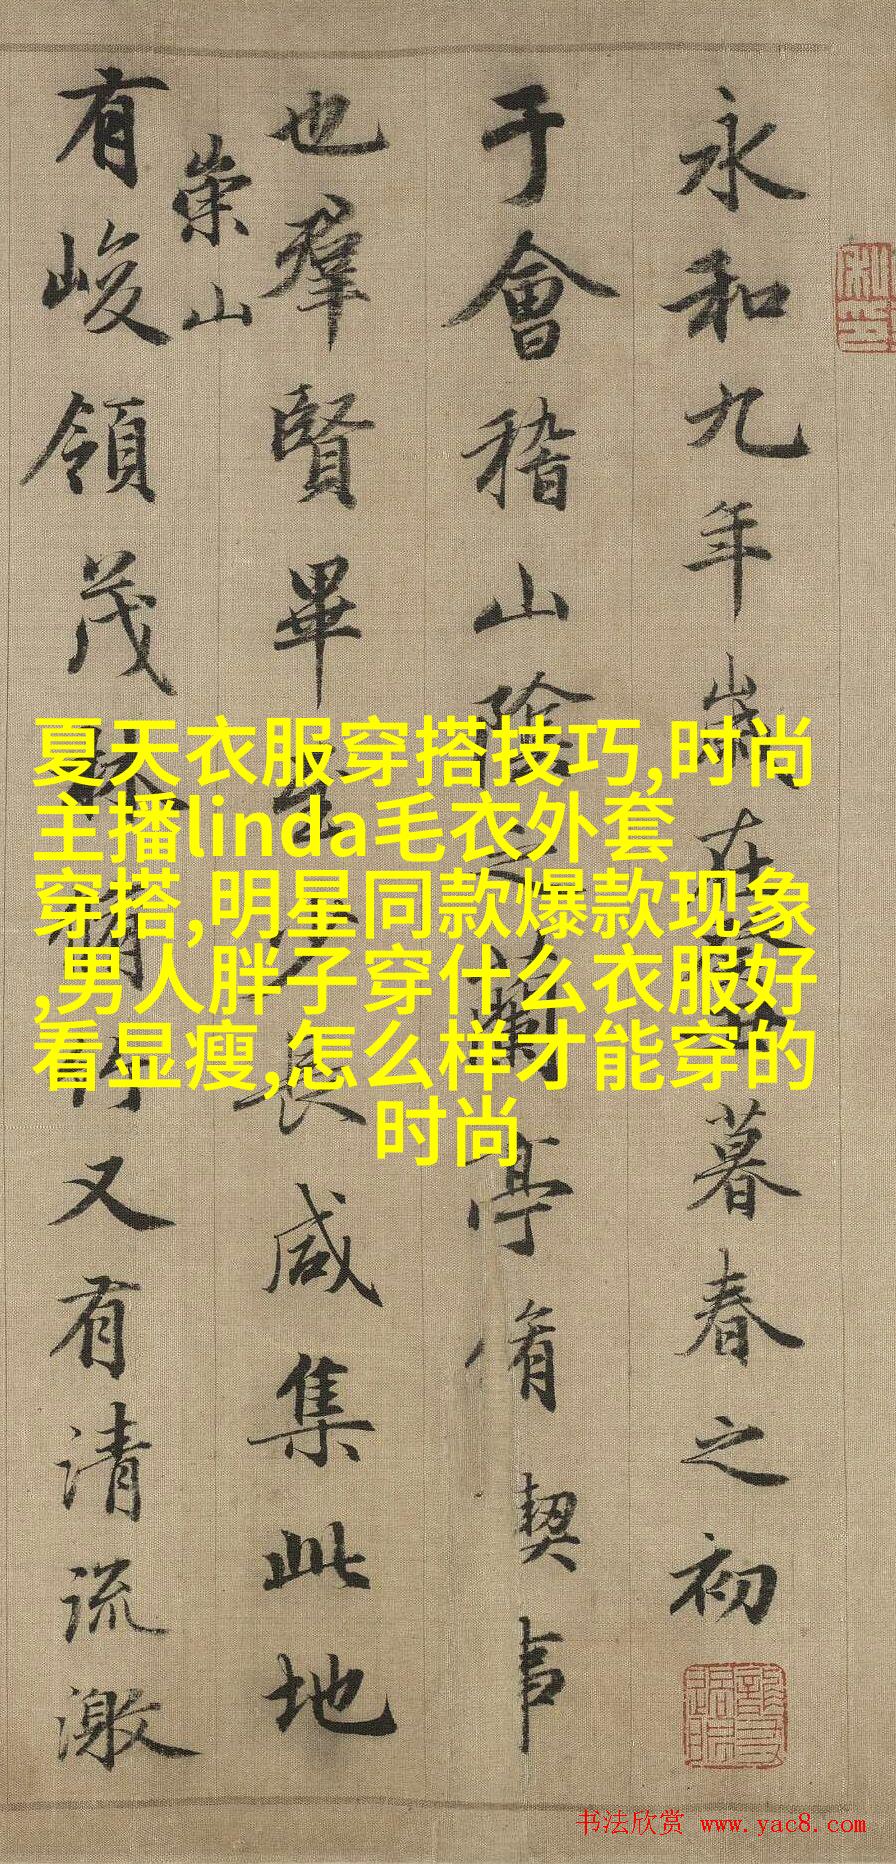 永和九年歲在癸丑暮春之初
于會稽山陰之蘭亭脩禊事
也羣賢畢至少長咸集此地
崇山
有峻領茂林脩竹又有清流激
夏天衣服穿搭技巧,时尚
主播linda毛衣外套
穿搭,明星同款爆款现象
,男人胖子穿什么衣服好
看显瘦,怎么样才能穿的
时尚
书法欣赏 www.yac8.com